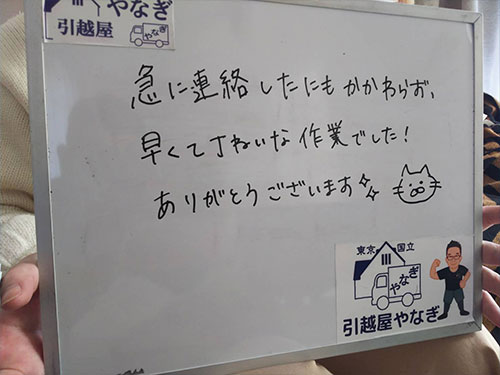 やなぎ
引越屋
やなぎ
急に連絡したにもかかわらず、
早くて丁ねいな作業でした！
ありがとうございます
東京
国立
やなぎ
引越屋やなぎ